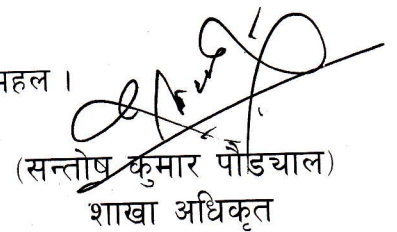 महल ।
(सन्तोष कुमार पौड्याल)
शाखा अधिकृत